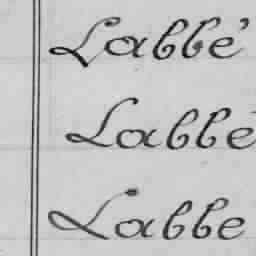 Labbé
Labbé
Labbe